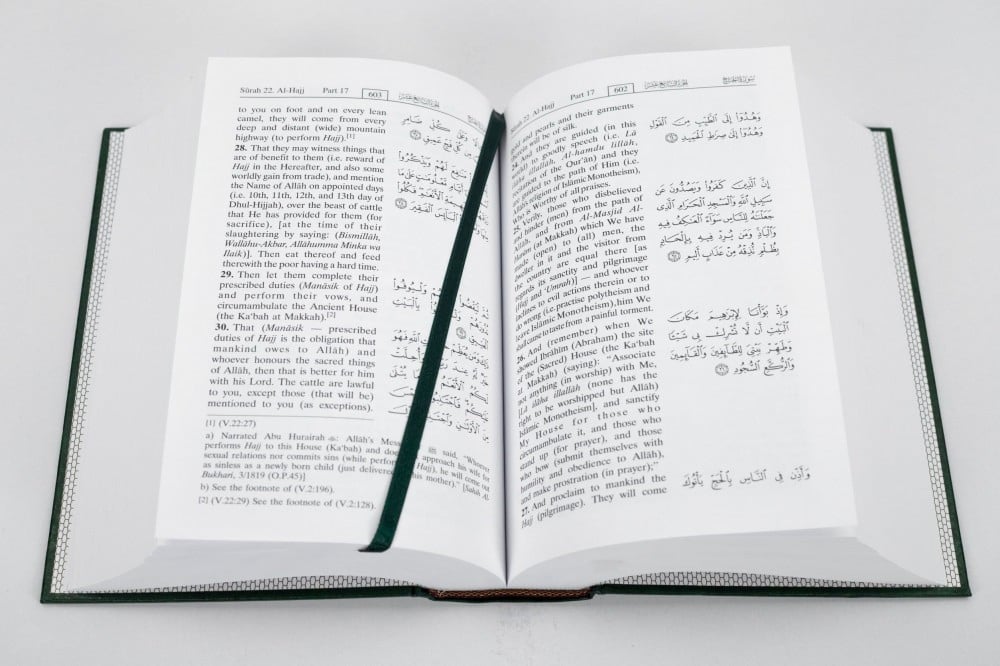 22. Al-Hajj Part 17 602 الجزء السابع عشر سورة الحج
and pearls and their garments
therein will be of silk.
24. And they are guided (in this
world) to goodly speech (i.e. Lâ
ilâha illallâh, Al-hamdu lillâh,
recitation of the Qur'ân) and they
are guided to the path of Him (i.e.
religion of Islâmic Monotheism),
who is Worthy of all praises.
25. Verily, those who disbelieved
and hinder (men) from the path of
Allâh, and from Al-Masjid Al-
Harâm (at Makkah) which We have
made (open) to (all) men, the
dweller in it and the visitor from
the country are equal there [as
regards its sanctity and pilgrimage
(Hajj and 'Umrah)] — and whoever
inclines to evil actions therein or to
do wrong (i.e. practise polytheism and
leave Islâmic Monotheism), him We
shall cause to taste from a painful torment.
26. And (remember) when We
showed Ibrâhîm (Abraham) the site
of the (Sacred) House (the Ka'bah
at Makkah) (saying): "Associate
not anything (in worship) with Me,
[Lâ ilâha illallâh (none has the
right to be worshipped but Allâh)
Islâmic Monotheism], and sanctify
My House for those who
circumambulate it, and those who
stand up (for prayer), and those
who bow (submit themselves with
humility and obedience to Allâh),
and make prostration (in prayer)."
27. And proclaim to mankind the
Hajj (pilgrimage). They will come
وَهُدُوا إِلَى الطَّيِّبِ مِنَ الْقَوْلِ
وَهُدُوا إِلَى صِرَاطِ الْحَمِيدِ ٢٤
إِنَّ الَّذِينَ كَفَرُوا وَيَصُدُّونَ عَن
سَبِيلِ اللَّهِ وَالْمَسْجِدِ الْحَرَامِ الَّذِي
جَعَلْنَاهُ لِلنَّاسِ سَوَاءً الْعَاكِفُ فِيهِ
وَالْبَادِ وَمَن يُرِدْ فِيهِ بِإِلْحَادٍ
بِظُلْمٍ نُذِقْهُ مِنْ عَذَابٍ أَلِيمٍ ٢٥
وَإِذْ بَوَّأْنَا لِإِبْرَاهِيمَ مَكَانَ
الْبَيْتِ أَن لَّا تُشْرِكْ بِي شَيْئًا
وَطَهِّرْ بَيْتِيَ لِلطَّائِفِينَ وَالْقَائِمِينَ
وَالرُّكَّعِ السُّجُودِ ٢٦
وَأَذِّن فِي النَّاسِ بِالْحَجِّ يَأْتُوكَ
Sûrah 22. Al-Hajj Part 17 603 الجزء السابع عشر
to you on foot and on every lean
camel, they will come from every
deep and distant (wide) mountain
highway (to perform Hajj).[1]
28. That they may witness things that
are of benefit to them (i.e. reward of
Hajj in the Hereafter, and also some
worldly gain from trade), and mention
the Name of Allâh on appointed days
(i.e. 10th, 11th, 12th, and 13th day of
Dhul-Hijjah), over the beast of cattle
that He has provided for them (for
sacrifice), [at the time of their
slaughtering by saying: (Bismillâh,
Wallâhu-Akbar, Allâhumma Minka wa
Ilaik)]. Then eat thereof and feed
therewith the poor having a hard time.
29. Then let them complete their
prescribed duties (Manâsik of Hajj)
and perform their vows, and
circumambulate the Ancient House
(the Ka'bah at Makkah).[2]
30. That (Manâsik — prescribed
duties of Hajj is the obligation that
mankind owes to Allâh) and
whoever honours the sacred things
of Allâh, then that is better for him
with his Lord. The cattle are lawful
to you, except those (that will be)
mentioned to you (as exceptions).
[1] (V.22:27)
a) Narrated Abu Hurairah: Allâh's said, "Whoever
performs Hajj to this House (Ka'bah) and approach his wife for
sexual relations nor commits sins (while Hajj), he will come out
as sinless as a newly born child (just delivered mother)." [Sahih Al-
Bukhari, 3/1819 (O.P.45)]
b) See the footnote of (V.2:196).
[2] (V.22:29) See the footnote of (V.2:128).